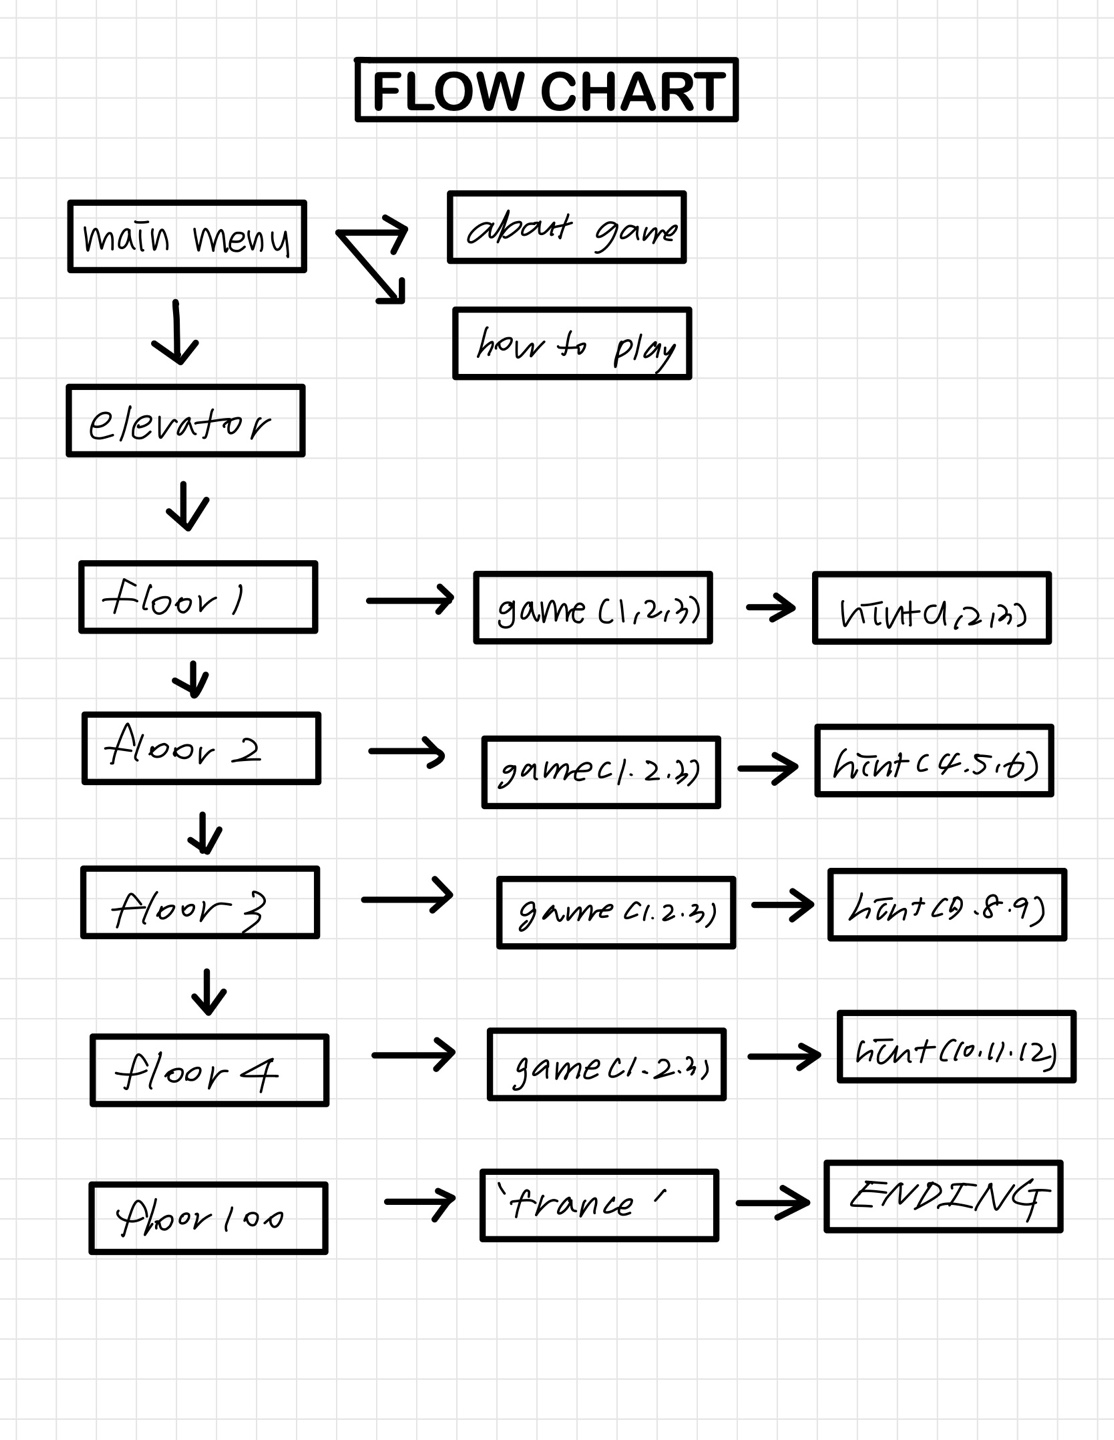 FLOW CHART
main menu
about game
how to play
elevator
floor 1
game (1,2,3)
hint(1,2,3)
floor 2
game(1.2.3)
hint(4.5.6)
floor 3
game(1.2.3)
hint(7.8.9)
floor 4
game(1.2.3)
hint(10.11.12)
floor 100
'france'
ENDING